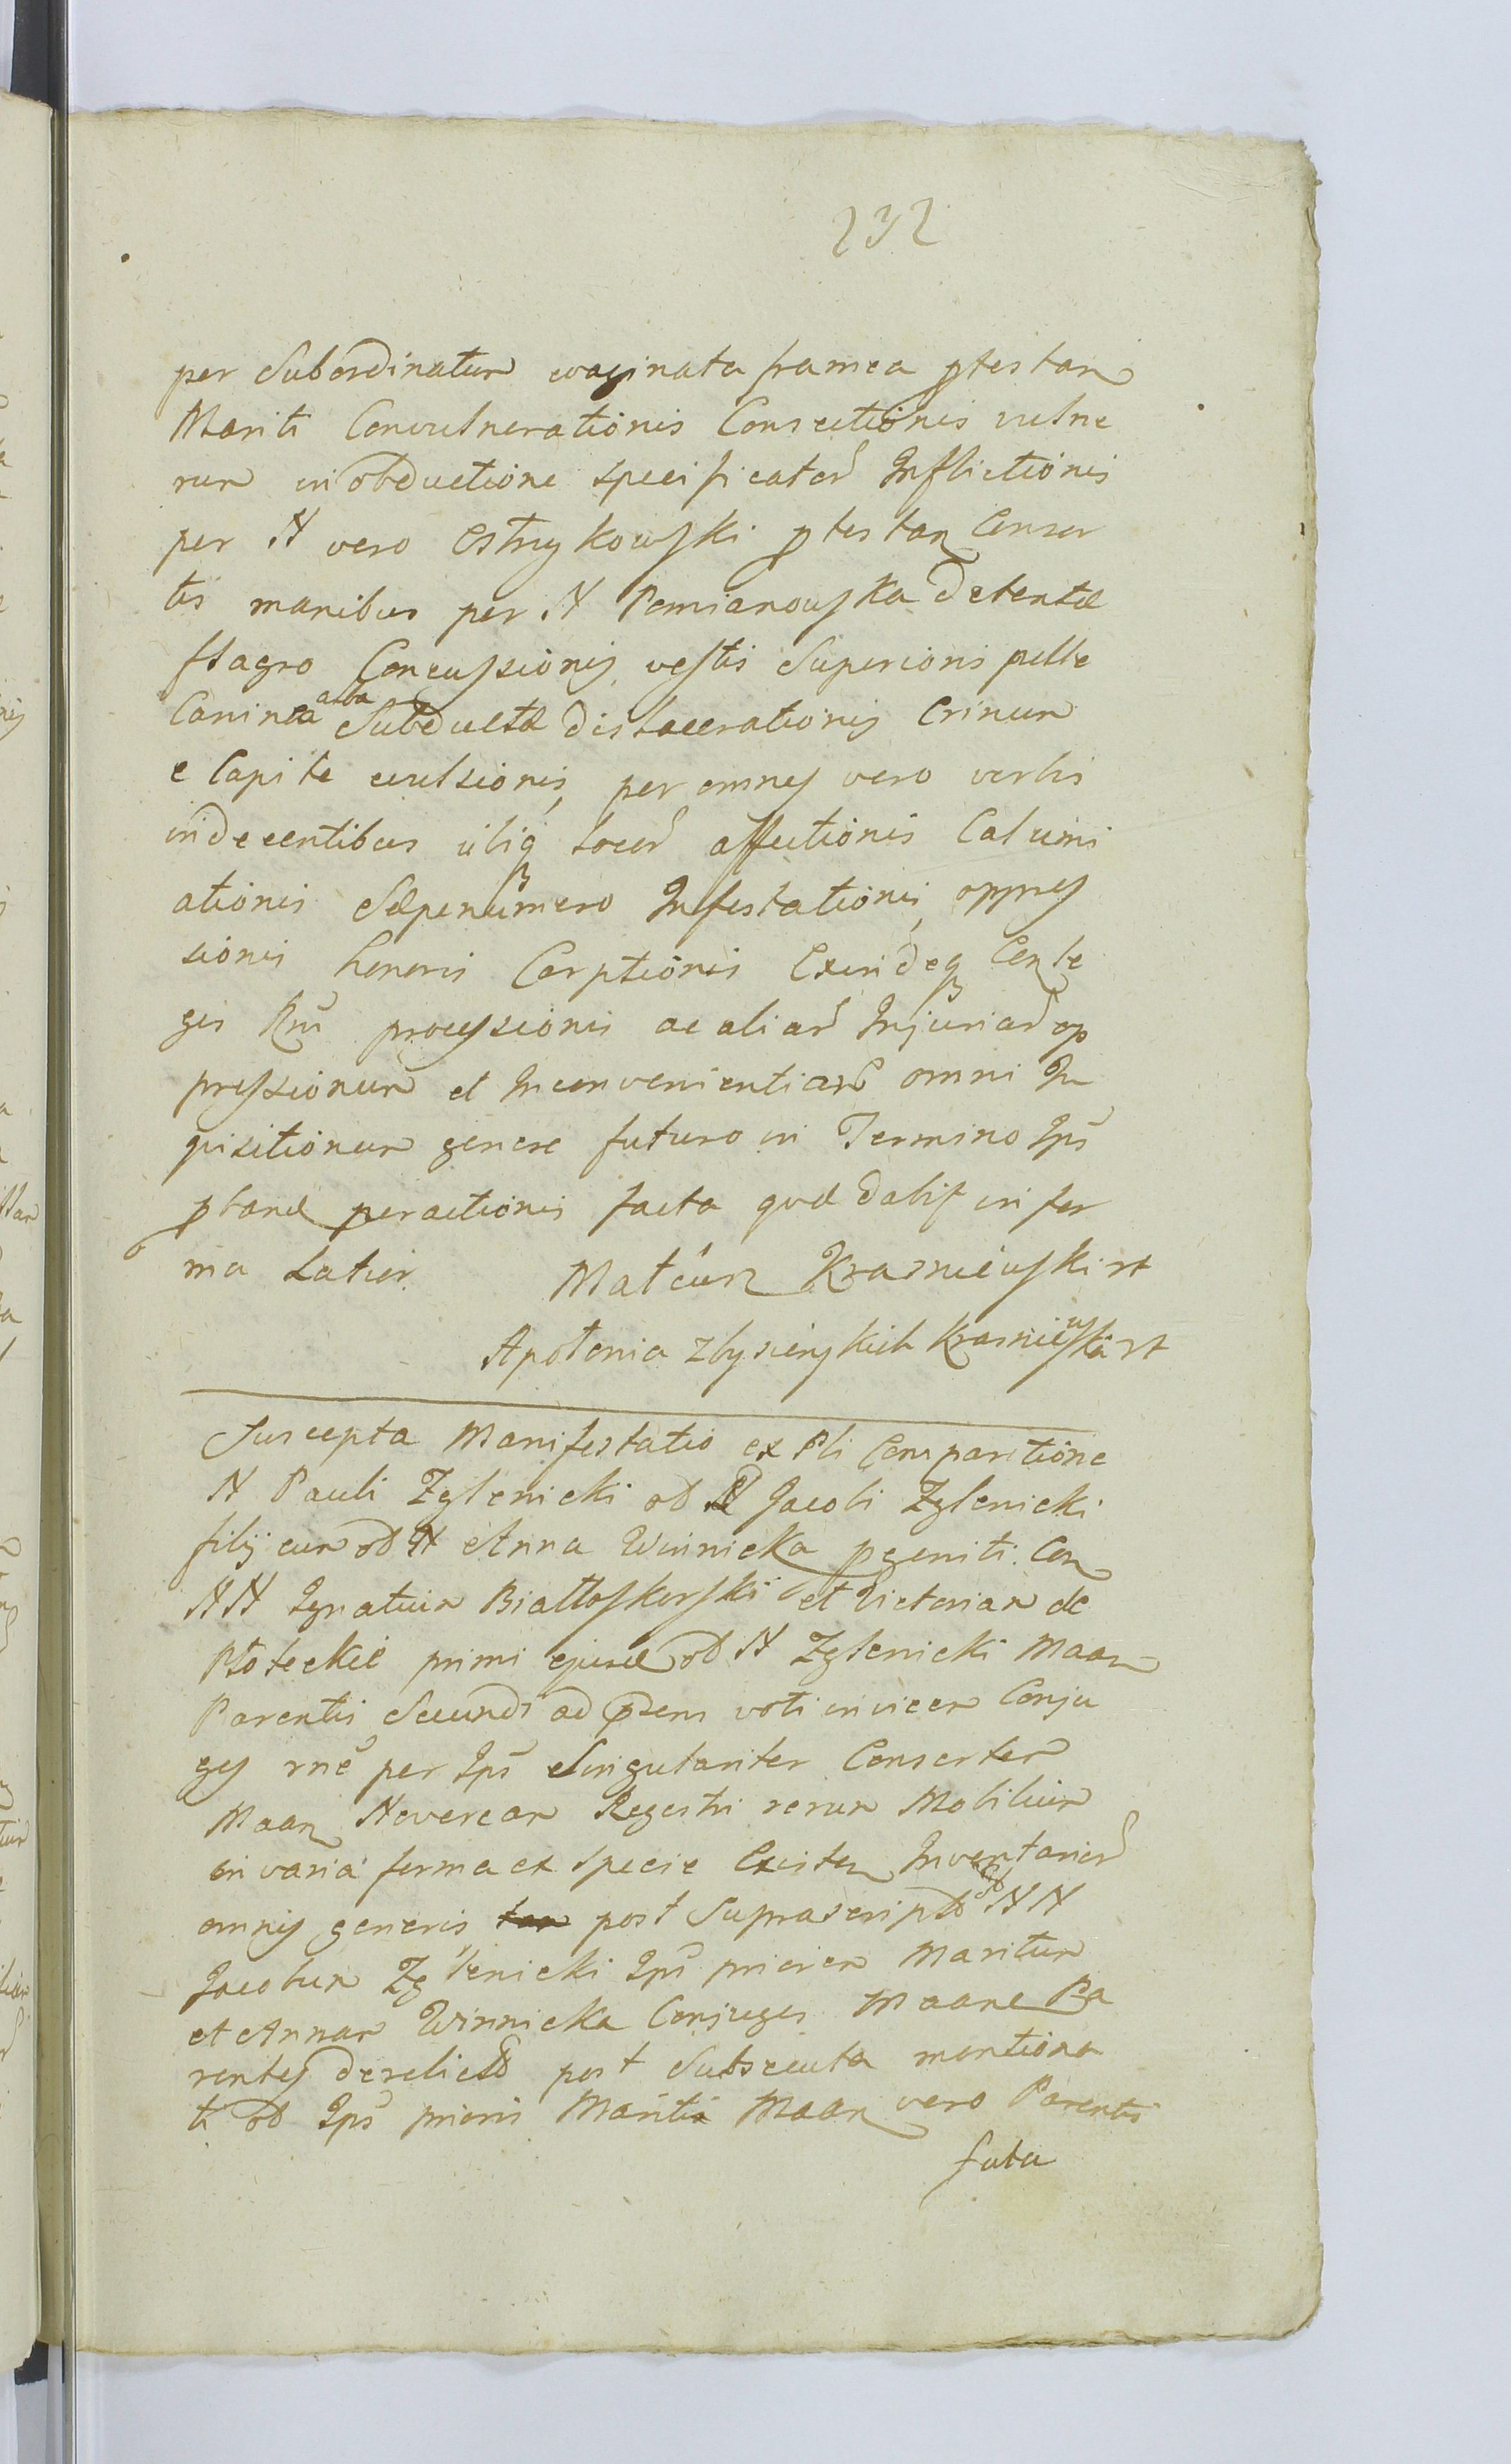 232
per Subordinatum evaginata framea ptestan
Mariti Convulnerationis Consectionis vulne
rum in obductione specificator Inflictionis
per N vero Ostrykowski ptestan Consor
tis manibus per N Pomianowska detentae
flagro Concussionis, vestis Superioris pelle
Canina alba Subductae dislacerationis Crinum
e Capite evulsionis, per omnes vero verbis
indecentibus ubiq locor affectionis Calumi
ationis Saepenumero Infestationis, oppres
sionis honoris Carptionis Exindeq Conle
ges Rni processionis ac aliar Injuriar op
pressionum et Inconvenientiar omni In
quisitionum genere futuro in Termino Ips
pbane peractionis facta quae dabit in for
ma Latior Mateusz Krasniewski rt
Apolonia Zbysinskich Krasniewska rt
Suscepta Manifestatio ex Pli Comparitione
N Pauli Zglenicki od N Jacobi Zglenicki
filij cum od N Anna Winnicka pgeniti. Con
NN Ignatium Białłoskorski et Victoriam de
Płoteckie primi ejusd od N Zglenicki Maan
Parentis Secundi ad psens voti invicem Conju
ges rne per Ips Singulariter Consortem
Maan Novercam Regestri rerum Mobilium
in varia forma et Specie Existen Inventarior
omnis generis post Suprascripto od NN
Jacobum Zglenicki Ips priorem Maritum
et Annam Winnicka Conjuges Maane Pa
rentes derelicto post Subsecuta mentiona
ti od Ips prioris Mariti Maan vero Parentis
fata